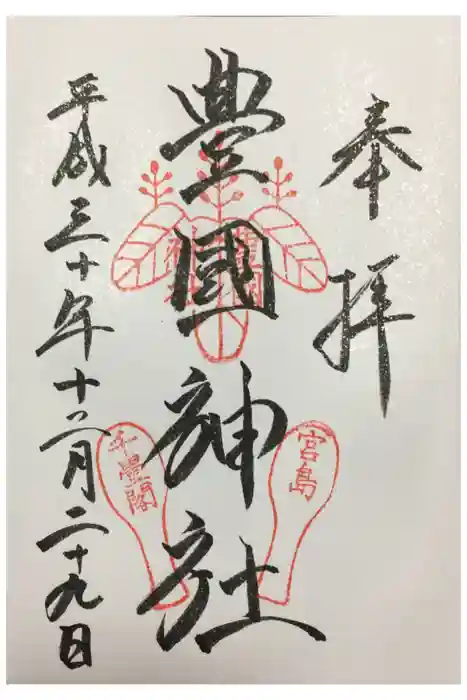 奉拝
豊國神社
豊國
神社
宮島
千畳閣
平成三十年十二月二十九日